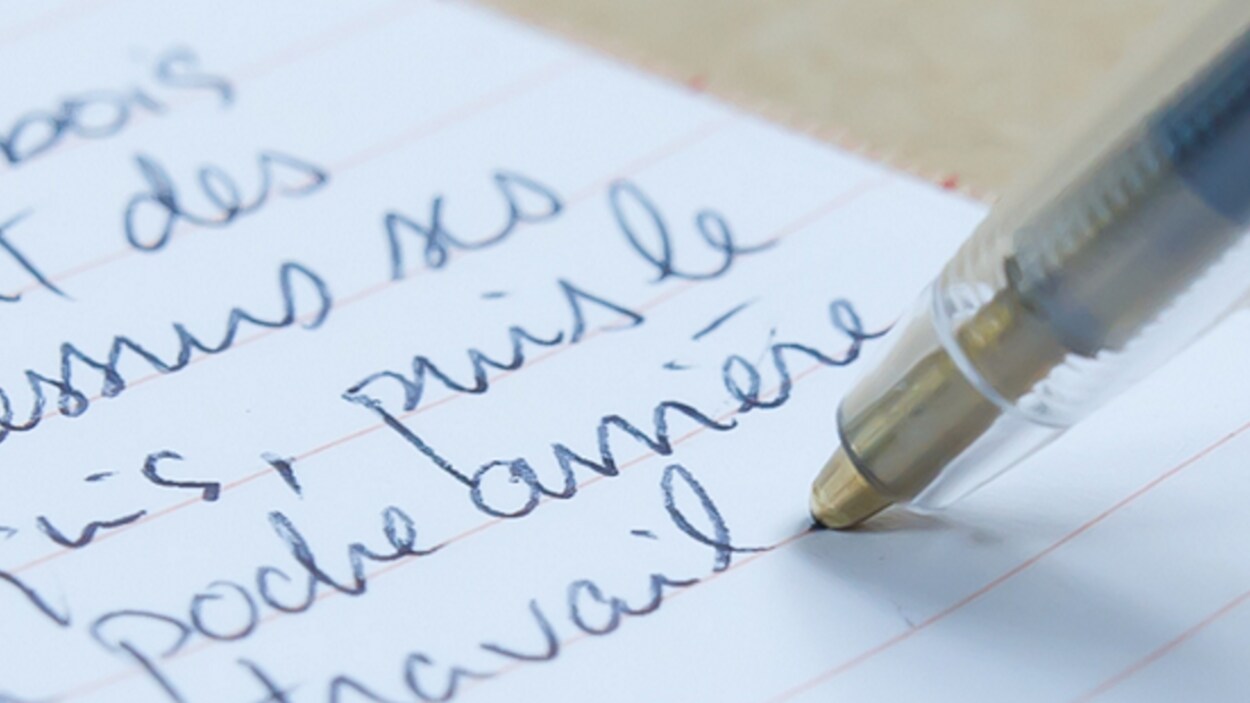 bois
t des
essus ses
puis, puis le
poche arrière
travail